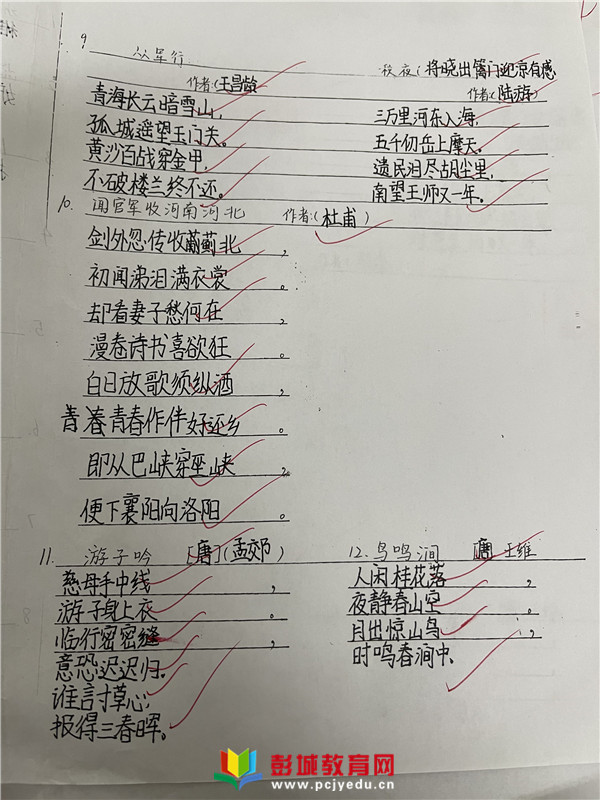 9 从军行
作者:(王昌龄
青海长云暗雪山,
孤城遥望玉门关。
黄沙百战穿金甲,
不破楼兰终不还。
秋夜(将晓出篱门迎凉有感
作者(陆游)
三万里河东入海,
五千仞岳上摩天。
遗民泪尽胡尘里,
南望王师又一年。
10. 闻官军收河南河北 作者:(杜甫)
剑外忽传收蓟北,
初闻涕泪满衣裳。
却看妻子愁何在,
漫卷诗书喜欲狂。
白日放歌须纵酒,
青春作伴好还乡。
即从巴峡穿巫峡,
便下襄阳向洛阳。
11. 游子吟 [唐](孟郊)
慈母手中线,
游子身上衣。
临行密密缝,
意恐迟迟归.
谁言寸草心,
报得三春晖。
12.鸟鸣涧 [唐] 王维
人闲桂花落,
夜静春山空。
月出惊山鸟,
时鸣春涧中.
彭城教育网
www.pcjyedu.cn